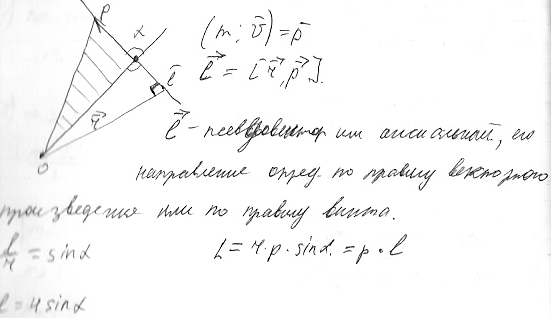 P
α
(m; v̄) = p̄
L⃗ = [r⃗, p⃗].
l̄
r⃗
O
L⃗ - псевдовектор или аксиальный, его
направление опред. по правилу векторного
произведение или по правилу винта.
l/r = sinα
L = r · p · sinα = p · l
l = r sinα